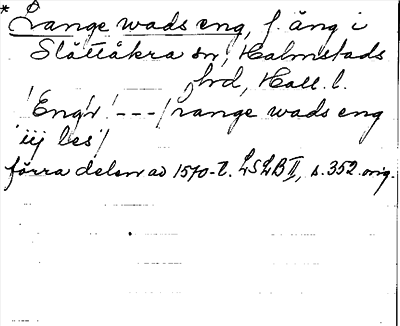 * Range wads eng, f. äng i
Slättåkra sn, Halmstads
hrd, Hall. l.
"Engr --- / range wads eng
iij les"/
förra delen av 1570-t. LSLB II, s. 352. orig.